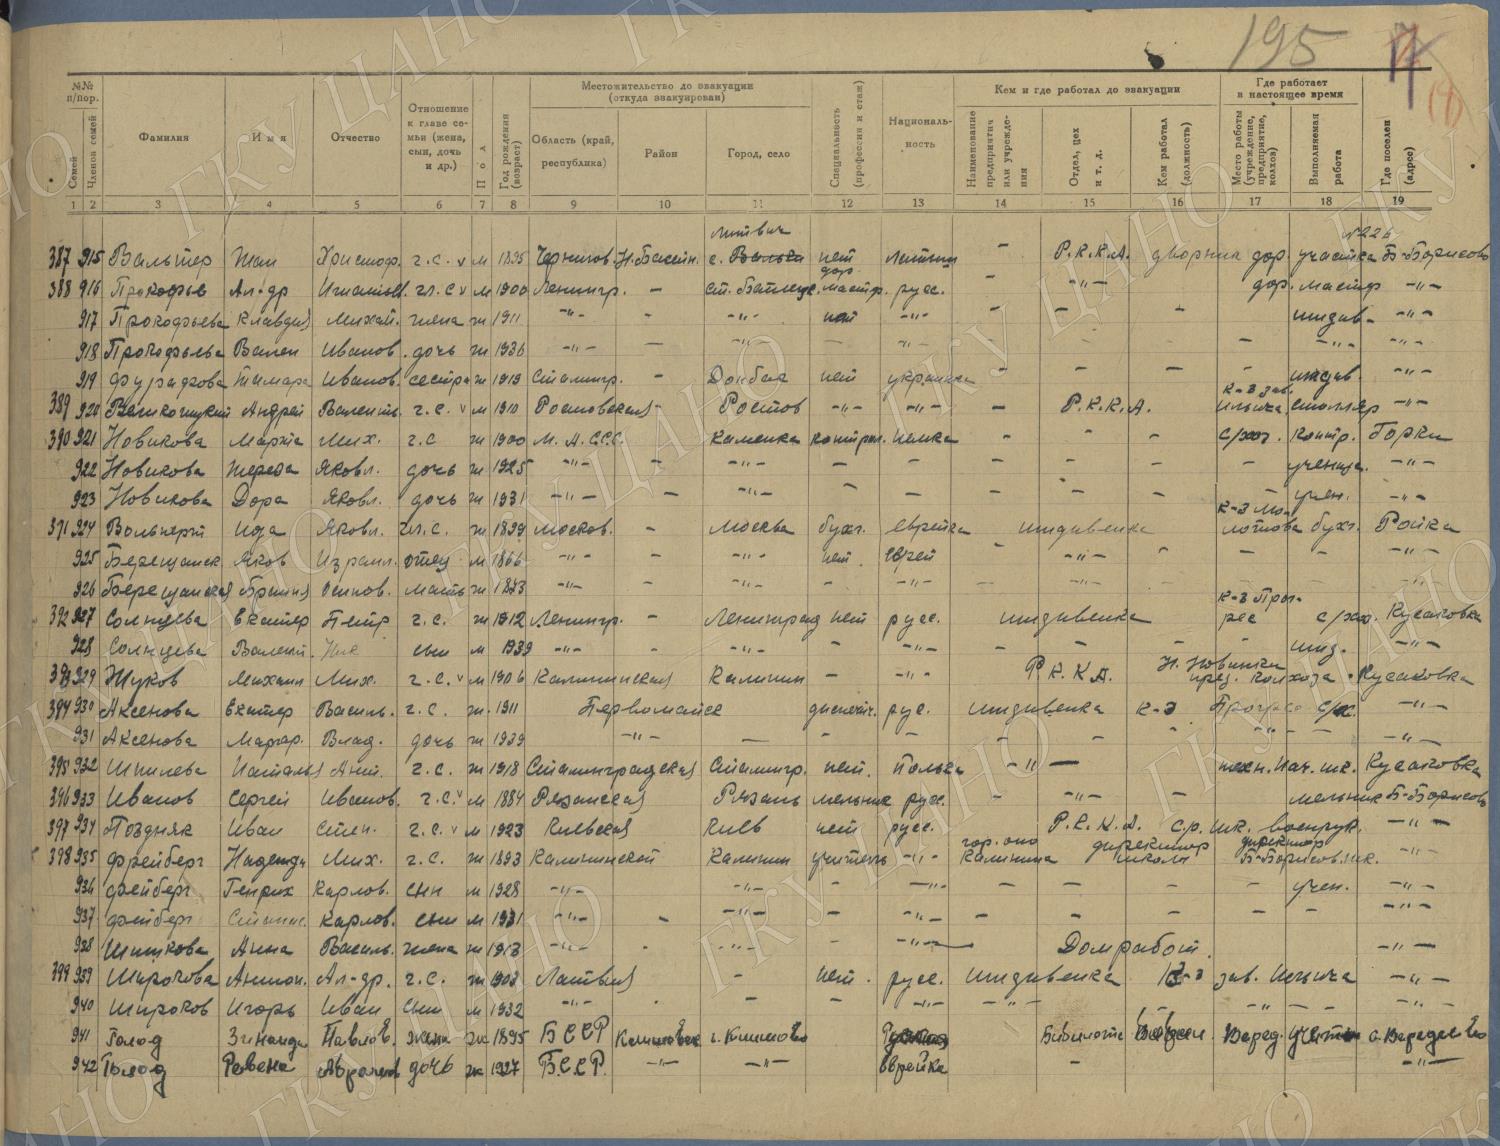 195
№№ п/пор. Местожительство до эвакуации (откуда эвакуирован) Кем и где работал до эвакуации Где работает в настоящее время
Семей Членов семей Фамилия Имя Отчество Отношение к главе семьи (жена, сын, дочь и др.) Пол Год рождения (возраст) Область (край, республика) Район Город, село Специальность (профессия и стаж) Национальность Наименование предприятия или учреждения Отдел, цех и т. д. Кем работал (должность) Место работы (учреждение, предприятие, колхоз) Выполняемая работа Где поселен (адрес)
1 2 3 4 5 6 7 8 9 10 11 12 13 14 15 16 17 18 19
387 915 Вальтер Жан Христоф. г.с. v м 1895 Чернигов. с. нет - Р.К.К.А. дворник дор. участка Б-Борисово
388 916 Прокофьев Ал-др гл. с v м 1900 Ленингр. - ст. дор. мастер. русс. - -"- дор. мастер -"-
917 Прокофьева Клавдия Михай. жена ж 1911 -"- - -"- нет -"- - - - иждив- -"-
918 Прокофьева Вален Иванов. дочь ж 1936 -"- - -"- -"- -"-
919 Тамара Иванов. сестра ж 1919 Сталингр. - Донбас нет украинка - - - - иждив. -"-
389 920 Андрей Валент. г.с. v м 1910 Ростовская - Ростов -"- -"- - Р.К.К.А. к-з зав. Ильича столяр -"-
390 921 Новикова Марта Мих. г.с ж 1900 Каменка контрол. немка - - - с/хоз. контр. Горки
922 Новикова Тереза Яковл. дочь ж 1925 -"- - -"- - -"- - - - ученица. -"-
923 Новикова Дора Яковл. дочь ж 1931 -"- - -"- - - - - - учен. -"-
391 924 Вольперт Ида Яковл. гл. с. ж 1899 Москов. - Москва бухг. еврейка иждивенка к-з Молотова бухг. Ройка
925 Берещанск Яков Израил. отец м 1866 -"- - -"- нет еврей - -"- - - - -"-
926 Берещанская Осипов. мать ж 1873 -"- - -"- - -"- - -"- - - - -"-
392 927 Солнцева Екатер Петр г.с. ж 1912 Ленингр. - Ленинград нет русс. иждивенка к-з Прогрес с/хоз. Кусаковка
928 Солнцева Валент. Ник сын м 1939 -"- - -"- - -"- - - - - ижд. -"-
393 929 Жуков Михаил Мих. г.с. v м 1906 Калининская Калинин - -"- Р.К.К.А. Н. Новинки пред. колхоза Кусаковка
394 930 Аксенова Екатер Василь. г.с. ж. 1911 Первомайск диспетч. рус. иждивенка к-з Прогресс с/х. -"-
931 Аксенова Маргар. Влад. дочь ж 1939 -"- - - - - - - -"- - -"-
395 932 Шпилева Наталья Ант. г.с. ж 1918 Сталинградская Сталингр. нет. полька -"- - - техн. Нач. шк. Кусаковка
396 933 Иванов Сергей Иванов. г.с. v м 1884 Рязанская Рязань мельник русс. - -"- - мельник Б-Борисово
397 934 Поздняк Иван Степ. г.с. v м 1923 Киевская Киев нет русс. Р.К.К.А. ср. шк. военрук. -"-
398 935 Фрейберг Надежда Мих. г.с. ж 1893 Калининской Калинин учитель -"- гор. оно Калинина директор школы директор Б-Борисов. шк. -"-
936 Фрейберг Генрих Карлов. сын м 1928 -"- -"- - -"- - - - - учен. -"-
937 Фрейберг Карлов. сын м 1931 -"- - -"- - -"- - - - - - -"-
938 Шишкова Анна Василь. жена ж 1913 -"- - -"- - -"- Домработ. -"-
399 939 Широкова Антон. Ал-др. г.с. ж 1903 Латвия - нет. русс. иждивенка к-з зав. Ильича -"-
940 Широков Игорь Иван сын м 1932 -"- - - - -"- -"- -"- - -"-
941 Голод Зинаида Павлов. жена ж 1895 БССР
942 Голод дочь ж 1927 БССР. -"- -"- еврейка - -"-